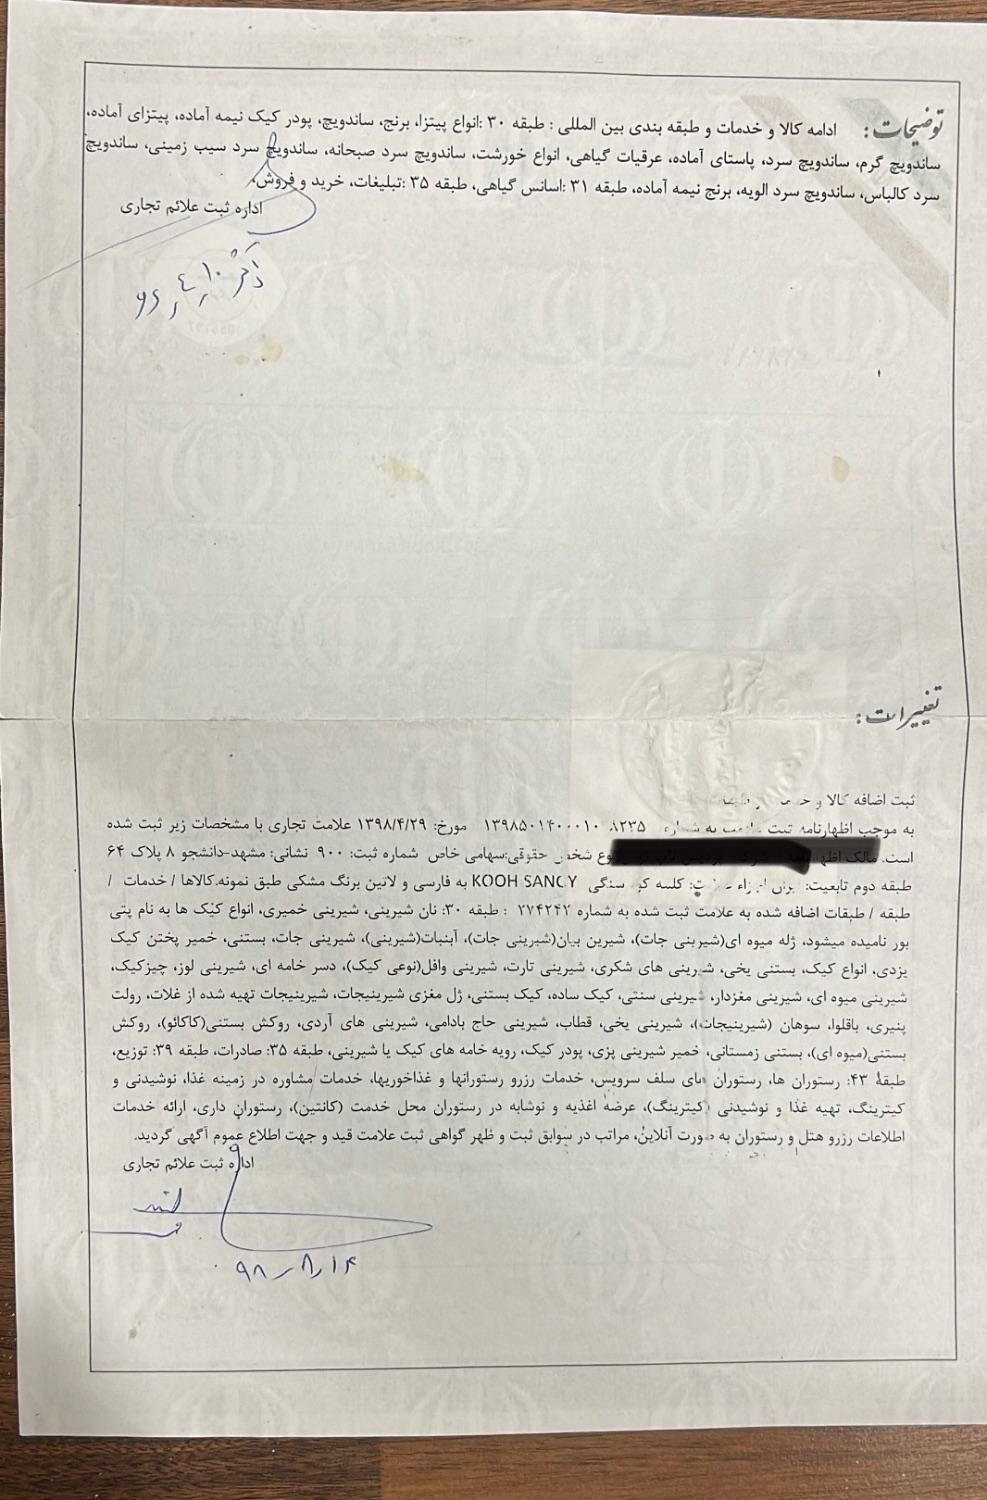 توضیحات: ادامه کالا و خدمات و طبقه بندی بین المللی : طبقه ۳۰ :انواع پیتزا، برنج، ساندویچ، پودر کیک نیمه آماده، پیتزای آماده،
ساندویچ گرم، ساندویچ سرد، پاستای آماده، عرقیات گیاهی، انواع خورشت، ساندویچ سرد صبحانه، ساندویچ سرد سیب زمینی، ساندویچ
سرد کالباس، ساندویچ سرد الویه، برنج نیمه آماده، طبقه ۳۱ :اسانس گیاهی، طبقه ۳۵ :تبلیغات، خرید و فروش،
اداره ثبت علائم تجاری
تغییرات:
ثبت اضافه کالا و
به موجب اظهارنامه ثبت به شماره مورخ: ۱۳۹۸/۴/۲۹ علامت تجاری با مشخصات زیر ثبت شده
است. مالک حقوقی:سهامی خاص شماره ثبت: ۹۰۰ نشانی: مشهد-دانشجو ۸ پلاک ۶۴
طبقه دوم تابعیت: کلمه سنگی KOOH SANGY به فارسی و لاتین برنگ مشکی طبق نمونه.کالاها / خدمات /
طبقه / طبقات اضافه شده به علامت ثبت شده به شماره ۲۷۴۲۴۲ : طبقه ۳۰: نان شیرینی، شیرینی خمیری، انواع کیک ها به نام پتی
بور نامیده میشود، ژله میوه ای(شیرینی جات)، شیرین بیان(شیرینی جات)، آبنبات(شیرینی)، شیرینی جات، بستنی، خمیر پختن کیک
یزدی، انواع کیک، بستنی یخی، شیرینی های شکری، شیرینی تارت، شیرینی وافل(نوعی کیک)، دسر خامه ای، شیرینی لوز، چیزکیک،
شیرینی میوه ای، شیرینی مغزدار، شیرینی سنتی، کیک ساده، کیک بستنی، ژل مغزی شیرینیجات، شیرینیجات تهیه شده از غلات، رولت
پنیری، باقلوا، سوهان (شیرینیجات)، شیرینی یخی، قطاب، شیرینی حاج بادامی، شیرینی های آردی، روکش بستنی(کاکائو)، روکش
بستنی(میوه ای)، بستنی زمستانی، خمیر شیرینی پزی، پودر کیک، رویه خامه های کیک یا شیرینی، طبقه ۳۵: صادرات، طبقه ۳۹: توزیع،
طبقه ۴۳: رستوران ها، رستوران های سلف سرویس، خدمات رزرو رستورانها و غذاخوریها، خدمات مشاوره در زمینه غذا، نوشیدنی و
کیترینگ، تهیه غذا و نوشیدنی (کیترینگ)، عرضه اغذیه و نوشابه در رستوران محل خدمت (کانتین)، رستوران داری، ارائه خدمات
اطلاعات رزرو هتل و رستوران به صورت آنلاین، مراتب در سوابق ثبت و ظهر گواهی ثبت علامت قید و جهت اطلاع عموم آگهی گردید.
اداره ثبت علائم تجاری
۹۸/۸/۱۴